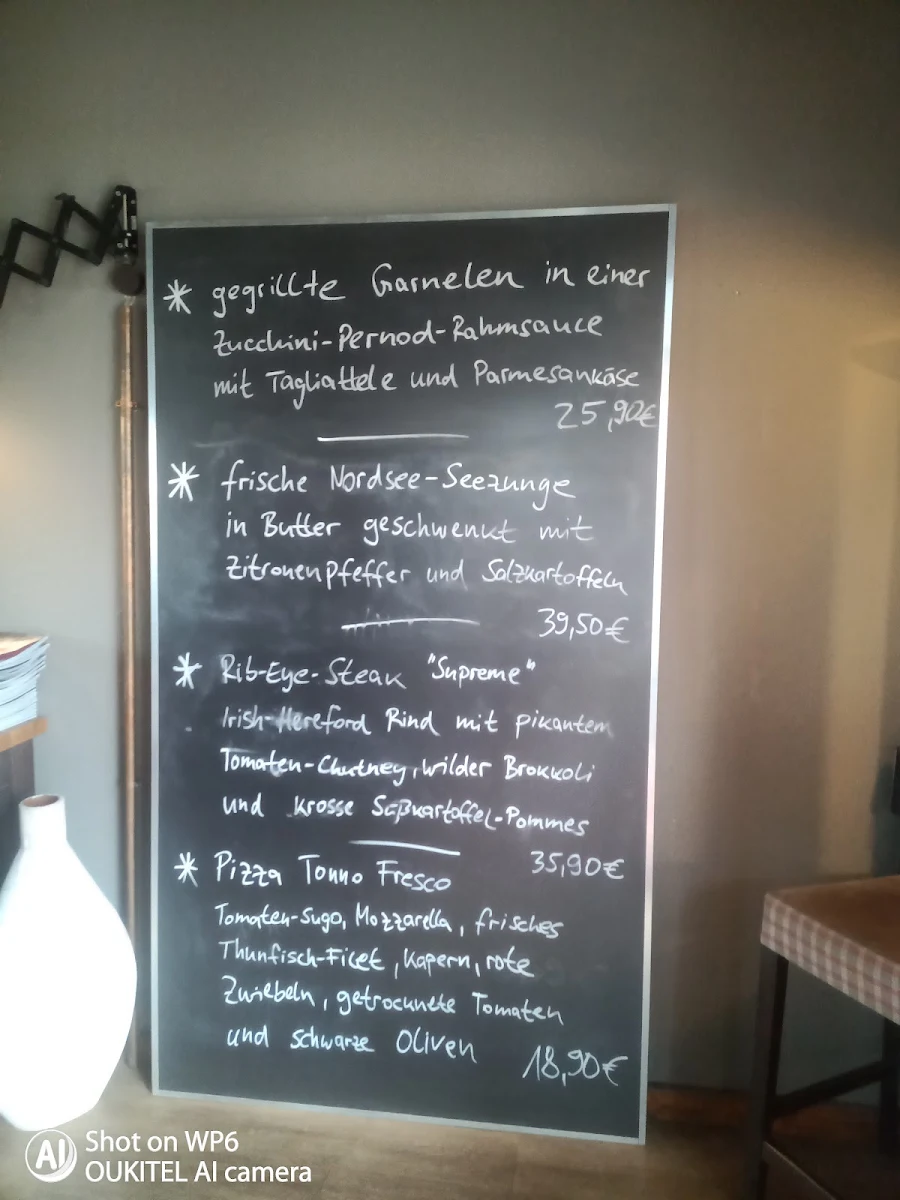 * gegrillte Garnelen in einer
Zucchini-Pernod-Rahmsauce
mit Tagliattele und Parmesankäse
25,90€
* frische Nordsee-Seezunge
in Butter geschwenkt mit
Zitronenpfeffer und Salzkartoffeln
39,50€
* Rib-Eye-Steak "Supreme"
Irish-Hereford Rind mit pikantem
Tomaten-Chutney, wilder Brokkoli
und krosse Süßkartoffel-Pommes
35,90€
* Pizza Tonno Fresco
Tomaten-Sugo, Mozzarella, frisches
Thunfisch-Filet, Kapern, rote
Zwiebeln, getrocknete Tomaten
und schwarze Oliven
18,90€
AI Shot on WP6
OUKITEL AI camera